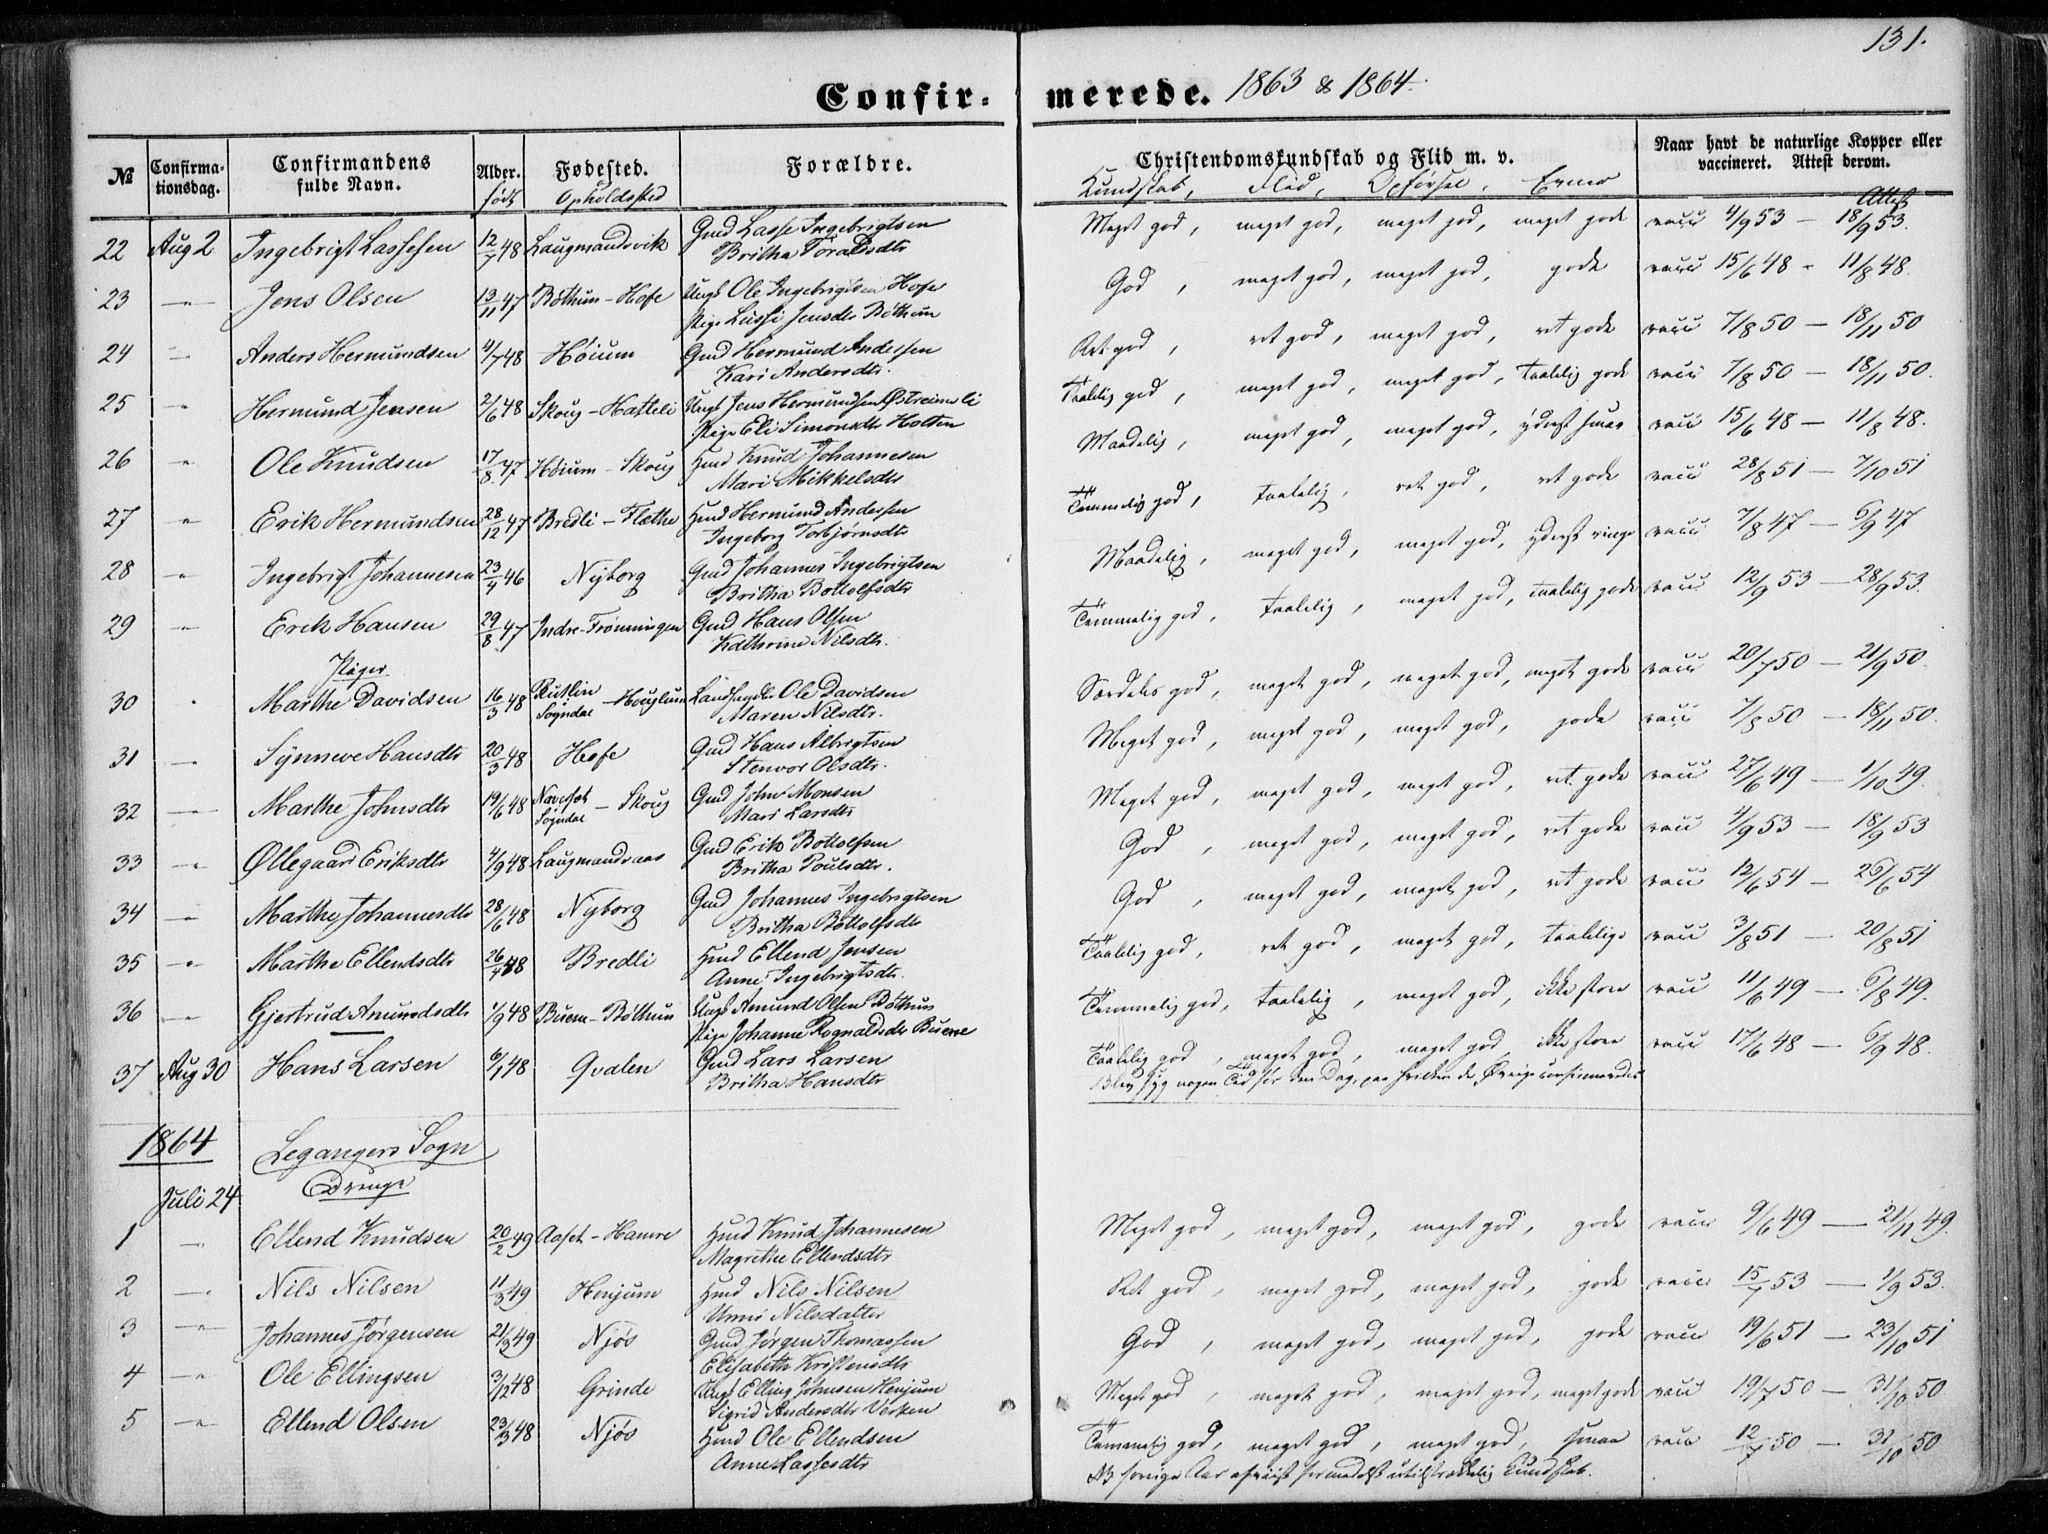 131.
Confir- merede. 1863 & 1864.
№ Confirma-tionsdag. Confirmandens fulde Navn. Alder. født Fødested. Opholdssted Forældre. Christendomskundskab og Flid m. v. Naar havt de naturlige Kopper eller vaccineret. Attest derom.
Kundskab, Flid, Opførsel, Evner Attest
22 Aug 2 Ingebrigt Lassesen 12/7 48 Laugmandsvik Gmd Lasse Ingebrigtsen Meget god, meget god, meget god, meget gode vacc 4/9 53 — 18/9 53.
Britha
23 — " Jens Olsen 13/11 47 Bøthun - Hofe Ungk Ole Ingebrigtsen Hofe God, meget god, meget god, gode vacc 15/6 48 - 11/8 48.
Pige Lussi Jensdtr Bøthun
24 — " Anders Hermundsen 4/7 48 Høium Gmd Hermund Andersen Ret god, ret god, meget god, ret gode vacc 7/8 50 — 18/11 50
Kari Andersdtr.
25 " Hermund Jensen 2/6 48 Skoug - Hatleli Ungk Jens Hermundsen Taalelig god, meget god, meget god, taalelig gode vacc 7/8 50 — 18/11 50.
Pige Eli Simonsdtr Holten
26 " Ole Knudsen 17/8 47 Høium - Skoug Hmd Knud Johannesen Maadelig, meget god, meget god, yderst smaa vacc 15/6 48 — 11/8 48.
Mari Mikkelsdtr
27 " Erik Hermundsen 28/12 47 Bredli - Flæthe Hmd Hermund Andersen Temmelig god, taalelig, ret god, ret gode vacc 28/8 51 — 7/10 51
Ingeborg Torbjørnsdtr
28 " Ingebrigt Johannesen 23/4 46 Nyborg Gmd Johannes Ingebrigtsen Maadelig, meget god, meget god, yderst ringe vacc 7/8 47 — 6/9 47
Britha Bottolfsdtr
29 " Erik Hansen 29/8 47 Indre-Frønningen Gmd Hans Olsen Temmelig god, taalelig, meget god, taalelig gode vacc 12/9 53 — 28/9 53.
Kathrine Nilsdtr.
Piger
30 " Marthe Davidsen 16/3 48 Rutlin Sogndal - Houglum Landhandler Ole Davidsen Særdeles god, meget god, meget god, meget gode vacc 20/7 50 — 21/9 50.
Maren Nilsdtr.
31 — " Synneve Hansdtr 20/3 48 Hofe Gmd Hans Albrigtsen Meget god, meget god, meget god, gode vacc 7/8 50 — 18/11 50.
Stenvor Olsdtr.
32 — " Marthe Johnsdtr 19/6 48 Navesæt Sogndal - Skoug Gmd John Monsen Meget god, meget god, meget god, ret gode vacc 27/6 49 — 1/10 49.
Mari Larsdtr
33 — " Øllegaard Eriksdtr 4/9 48 Laugmandsaas Gmd Erik Bottolfsen God, meget god, meget god, ret gode vacc 4/9 53 — 18/9 53
Britha Poulsdtr.
34 — " Marthe Johannesdtr 28/6 48 Nyborg Gmd Johannes Ingebrigtsen God, meget god, meget god, ret gode vacc 12/6 54 — 25/6 54
Britha Bottolfsdtr
35 " Marthe Ellendsdtr 26/4 48 Bredli Hmd Ellend Jensen Taalelig god, ret god, meget god, taalelige vacc 3/8 51 — 20/8 51
Anne Ingebrigtsdtr.
36 — " Gjertrud Amundsdtr 1/9 48 Buene - Bøthun Ungk Amund Olsen Bøthun Temmelig god, taalelig, meget god, ikke store vacc 11/6 49 — 6/8 49.
Pige Johanne Rognaldsdtr Buene
37 Aug 30 Hans Larsen 6/1 48 Qvalen Gmd Lars Larsen Taalelig god, meget god, meget god, ikke store vacc 17/6 48 — 6/9 48.
Britha Hansdtr Blev syg nogen Tid før den Dag, paa hvilken de Øvrige confirmeredes
1864 Legangers Sogn
Juli 24 Drenge
1 — Ellend Knudsen 20/2 49 Aaset - Hamre Hmd Knud Johannesen Meget god, meget god, meget god, gode vacc 9/6 49 — 21/11 49.
Magrethe Ellendsdtr
2 — " Nils Nilsen 11/3 49 Henjum Hmd Nils Nilsen Ret god, meget god, meget god, gode vacc 15/7 53 — 1/9 53.
Unni Nilsdatter
3 — " Johannes Jørgensen 21/3 49 Njøs Gmd Jørgen Thomassen God, meget god, meget god, gode vacc 19/6 51 — 23/10 51
Elisabeth Kristensdtr
4 — " Ole Ellingsen 3/12 48 Grinde Ungk Elling Johnsen Henjum Meget god, meget god, meget god, meget gode vacc 19/7 50 — 31/10 50
Sigrid Andersdtr
5 — " Ellend Olsen 23/3 48 Njøs Hmd Ole Ellendsen Temmelig god, meget god, meget god, smaa vacc 12/7 50 — 31/10 50
Anne Lassesdtr NB forrige Aar afviist formedelst utilstrækkelig Kundskab.